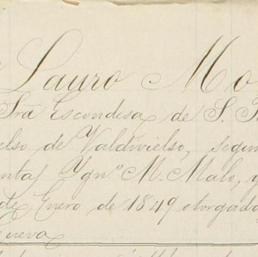 Lauro Mo
Sra Escondesa de S. P
elso de Valdivielso, segun
enta) Ygn.º M. Malo, y
de Enero de 1849 otorgado
Cueva